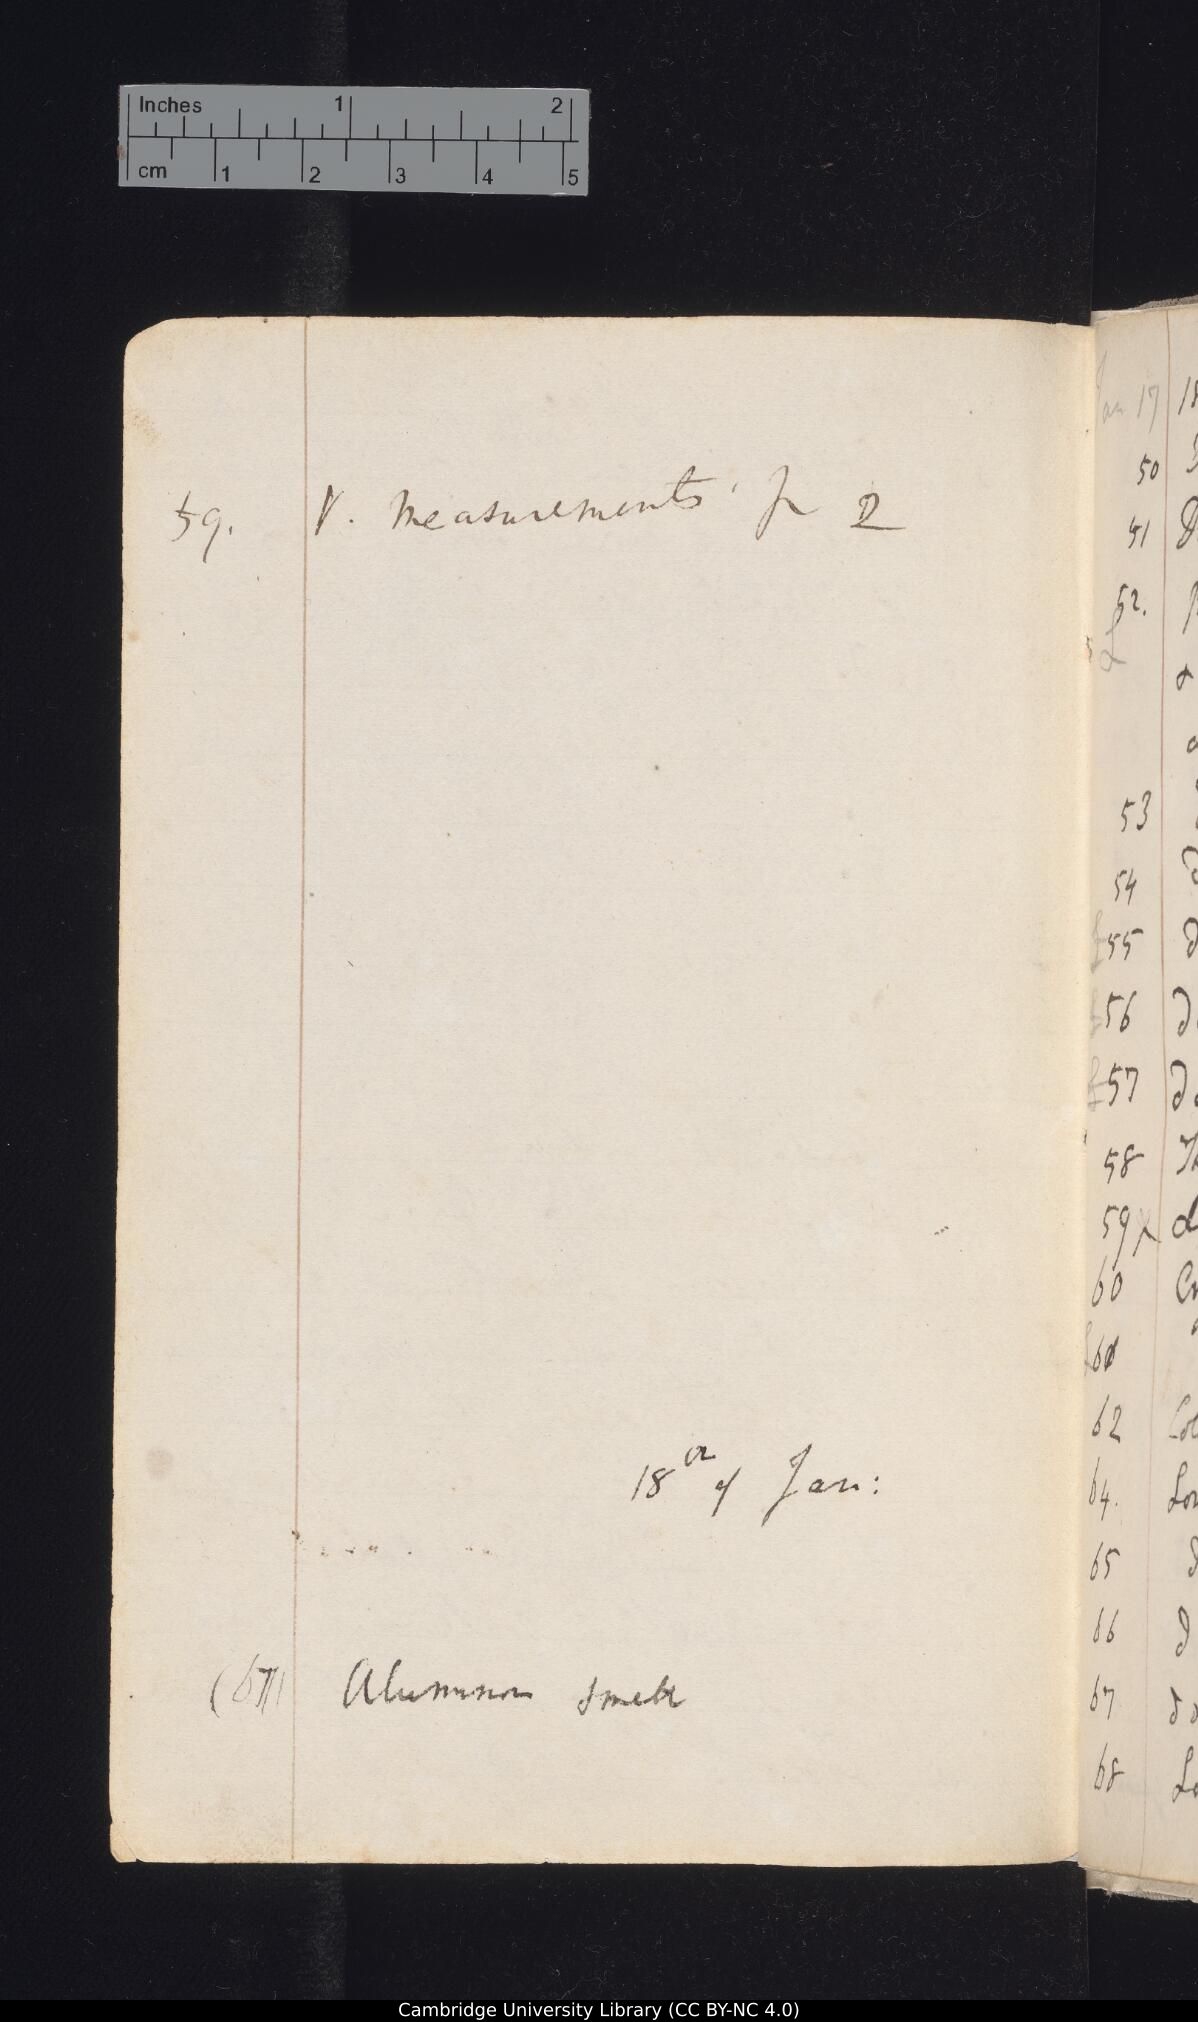 Inches 1 2
cm 1 2 3 4 5
59. V. Measurements 2
18th of Jan:
(67) Aluminous smell
Jan 17
50
51
52.
53
54
55
56
57
58
59
60
62
64.
65
66
67
68
Cambridge University Library (CC BY-NC 4.0)